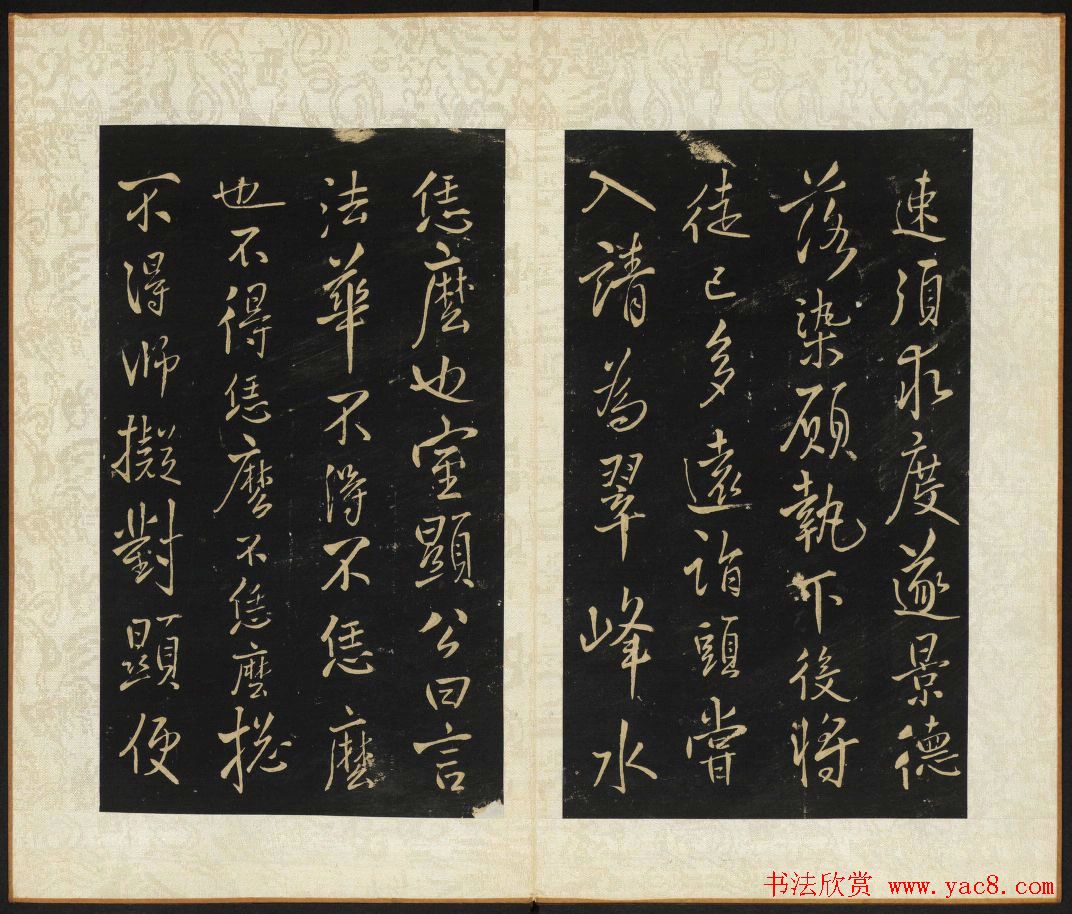 速須求度遂景德
落染願執下後將
徒已多遠詣頭嘗
入請為翠峰水
恁麼也室顯公曰言
法華不得不恁麼
也不得恁麼不恁麼揔
不得師擬對顯便
书法欣赏 www.yac8.com